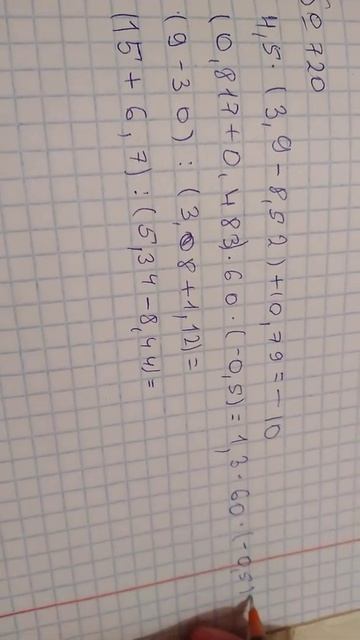 № 720
4,5 · (3,9 - 8,52) + 10,79 = -10
(0,817 + 0,483) · 60 · (-0,5) = 1,3 · 60 · (-0,5)
(9 - 30) : (3,08 + 1,12) =
(15 + 6,7) : (5,34 - 8,44) =